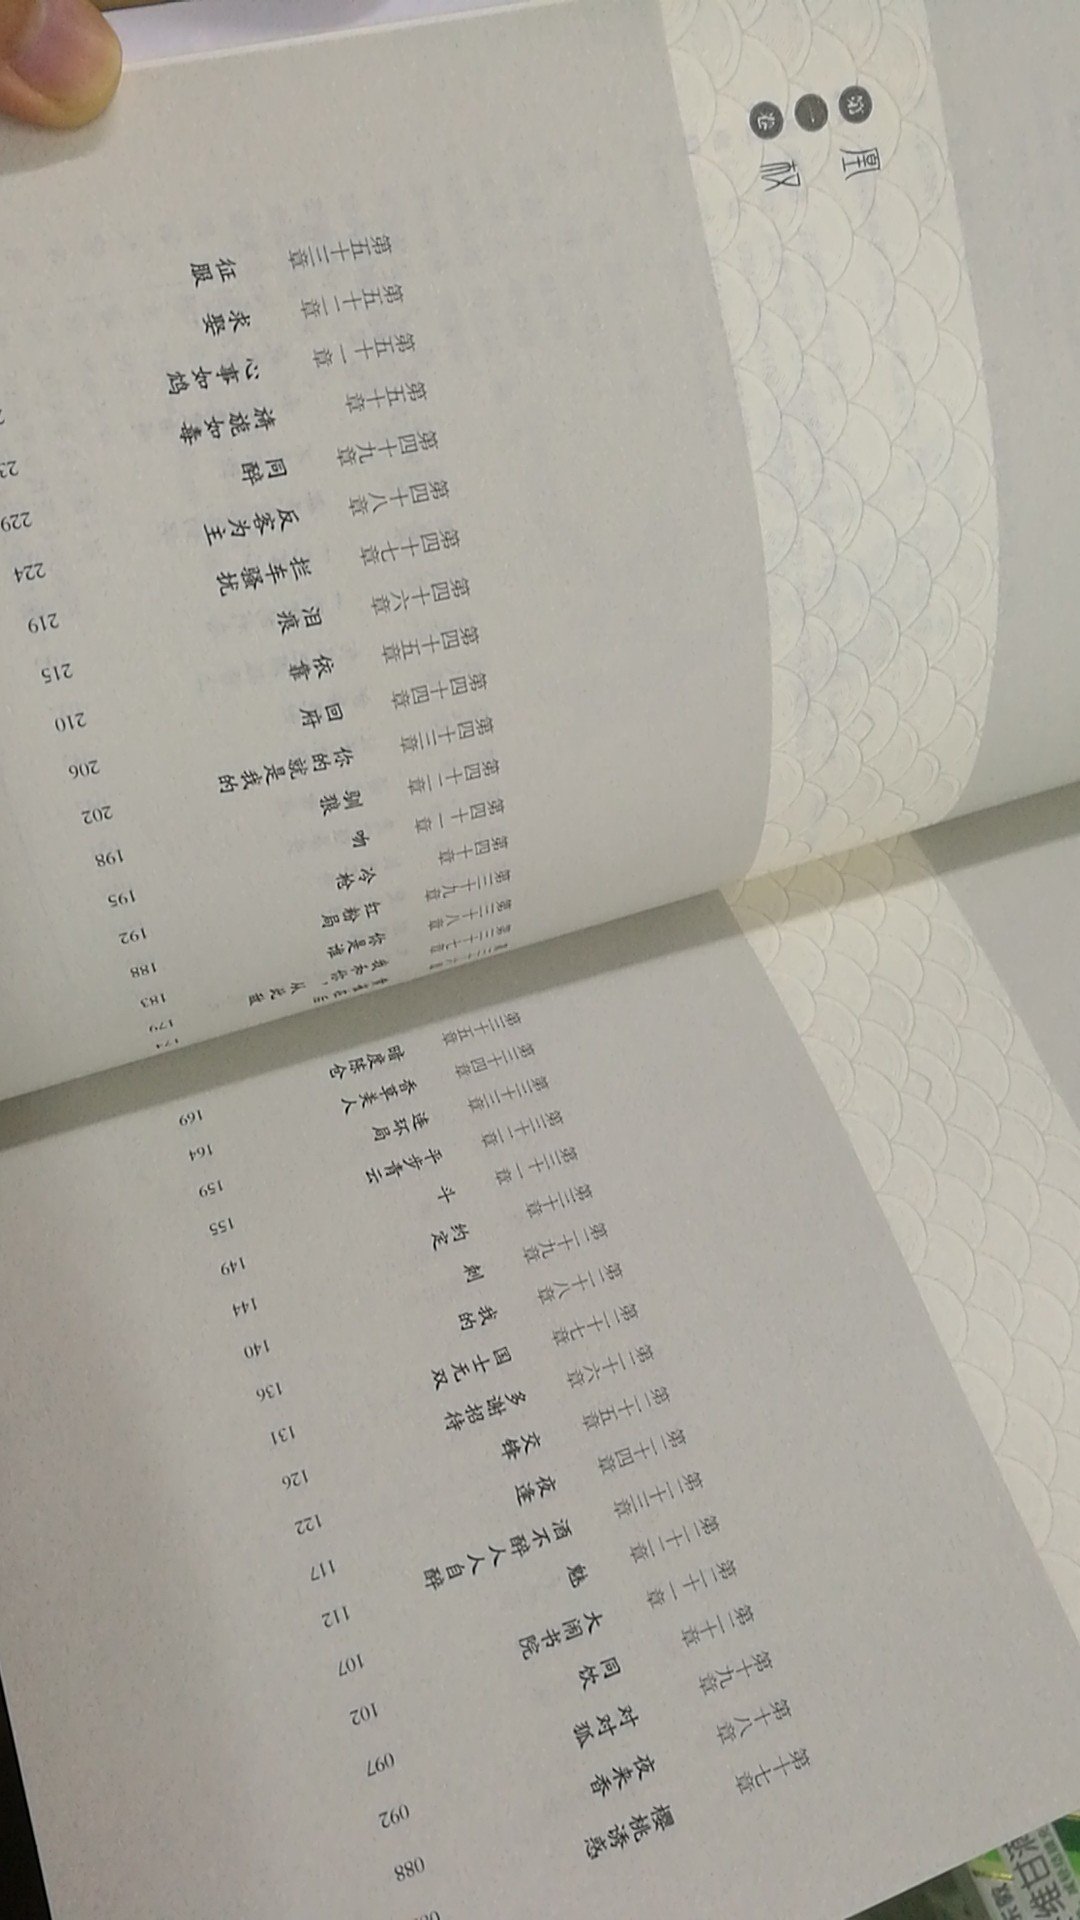 第一卷
凰权
第十七章 樱桃诱惑
第十八章 夜来香 088
第十九章 对对狐 092
第二十章 同饮 097
第二十一章 大闹书院 102
第二十二章 魅 107
第二十三章 酒不醉人人自醉 112
第二十四章 夜逢 117
第二十五章 交锋 122
第二十六章 多谢招待 126
第二十七章 国士无双 131
第二十八章 我的 136
第二十九章 刺 140
第三十章 约定 144
第三十一章 斗 149
第三十二章 平步青云 155
第三十三章 连环局 159
第三十四章 香草美人 164
第三十五章 暗度陈仓 169
第三十六章 174
第三十七章 我和你，从此 179
第三十八章 你是谁 183
第三十九章 红粉局 188
第四十章 冷枪 192
第四十一章 吻 195
第四十二章 驯狼 198
第四十三章 你的就是我的 202
第四十四章 回府 206
第四十五章 依靠 210
第四十六章 泪痕 215
第四十七章 拦车骚扰 219
第四十八章 反客为主 224
第四十九章 同醉 229
第五十章 旖旎如毒
第五十一章 心事如鸩
第五十二章 求娶
第五十三章 征服